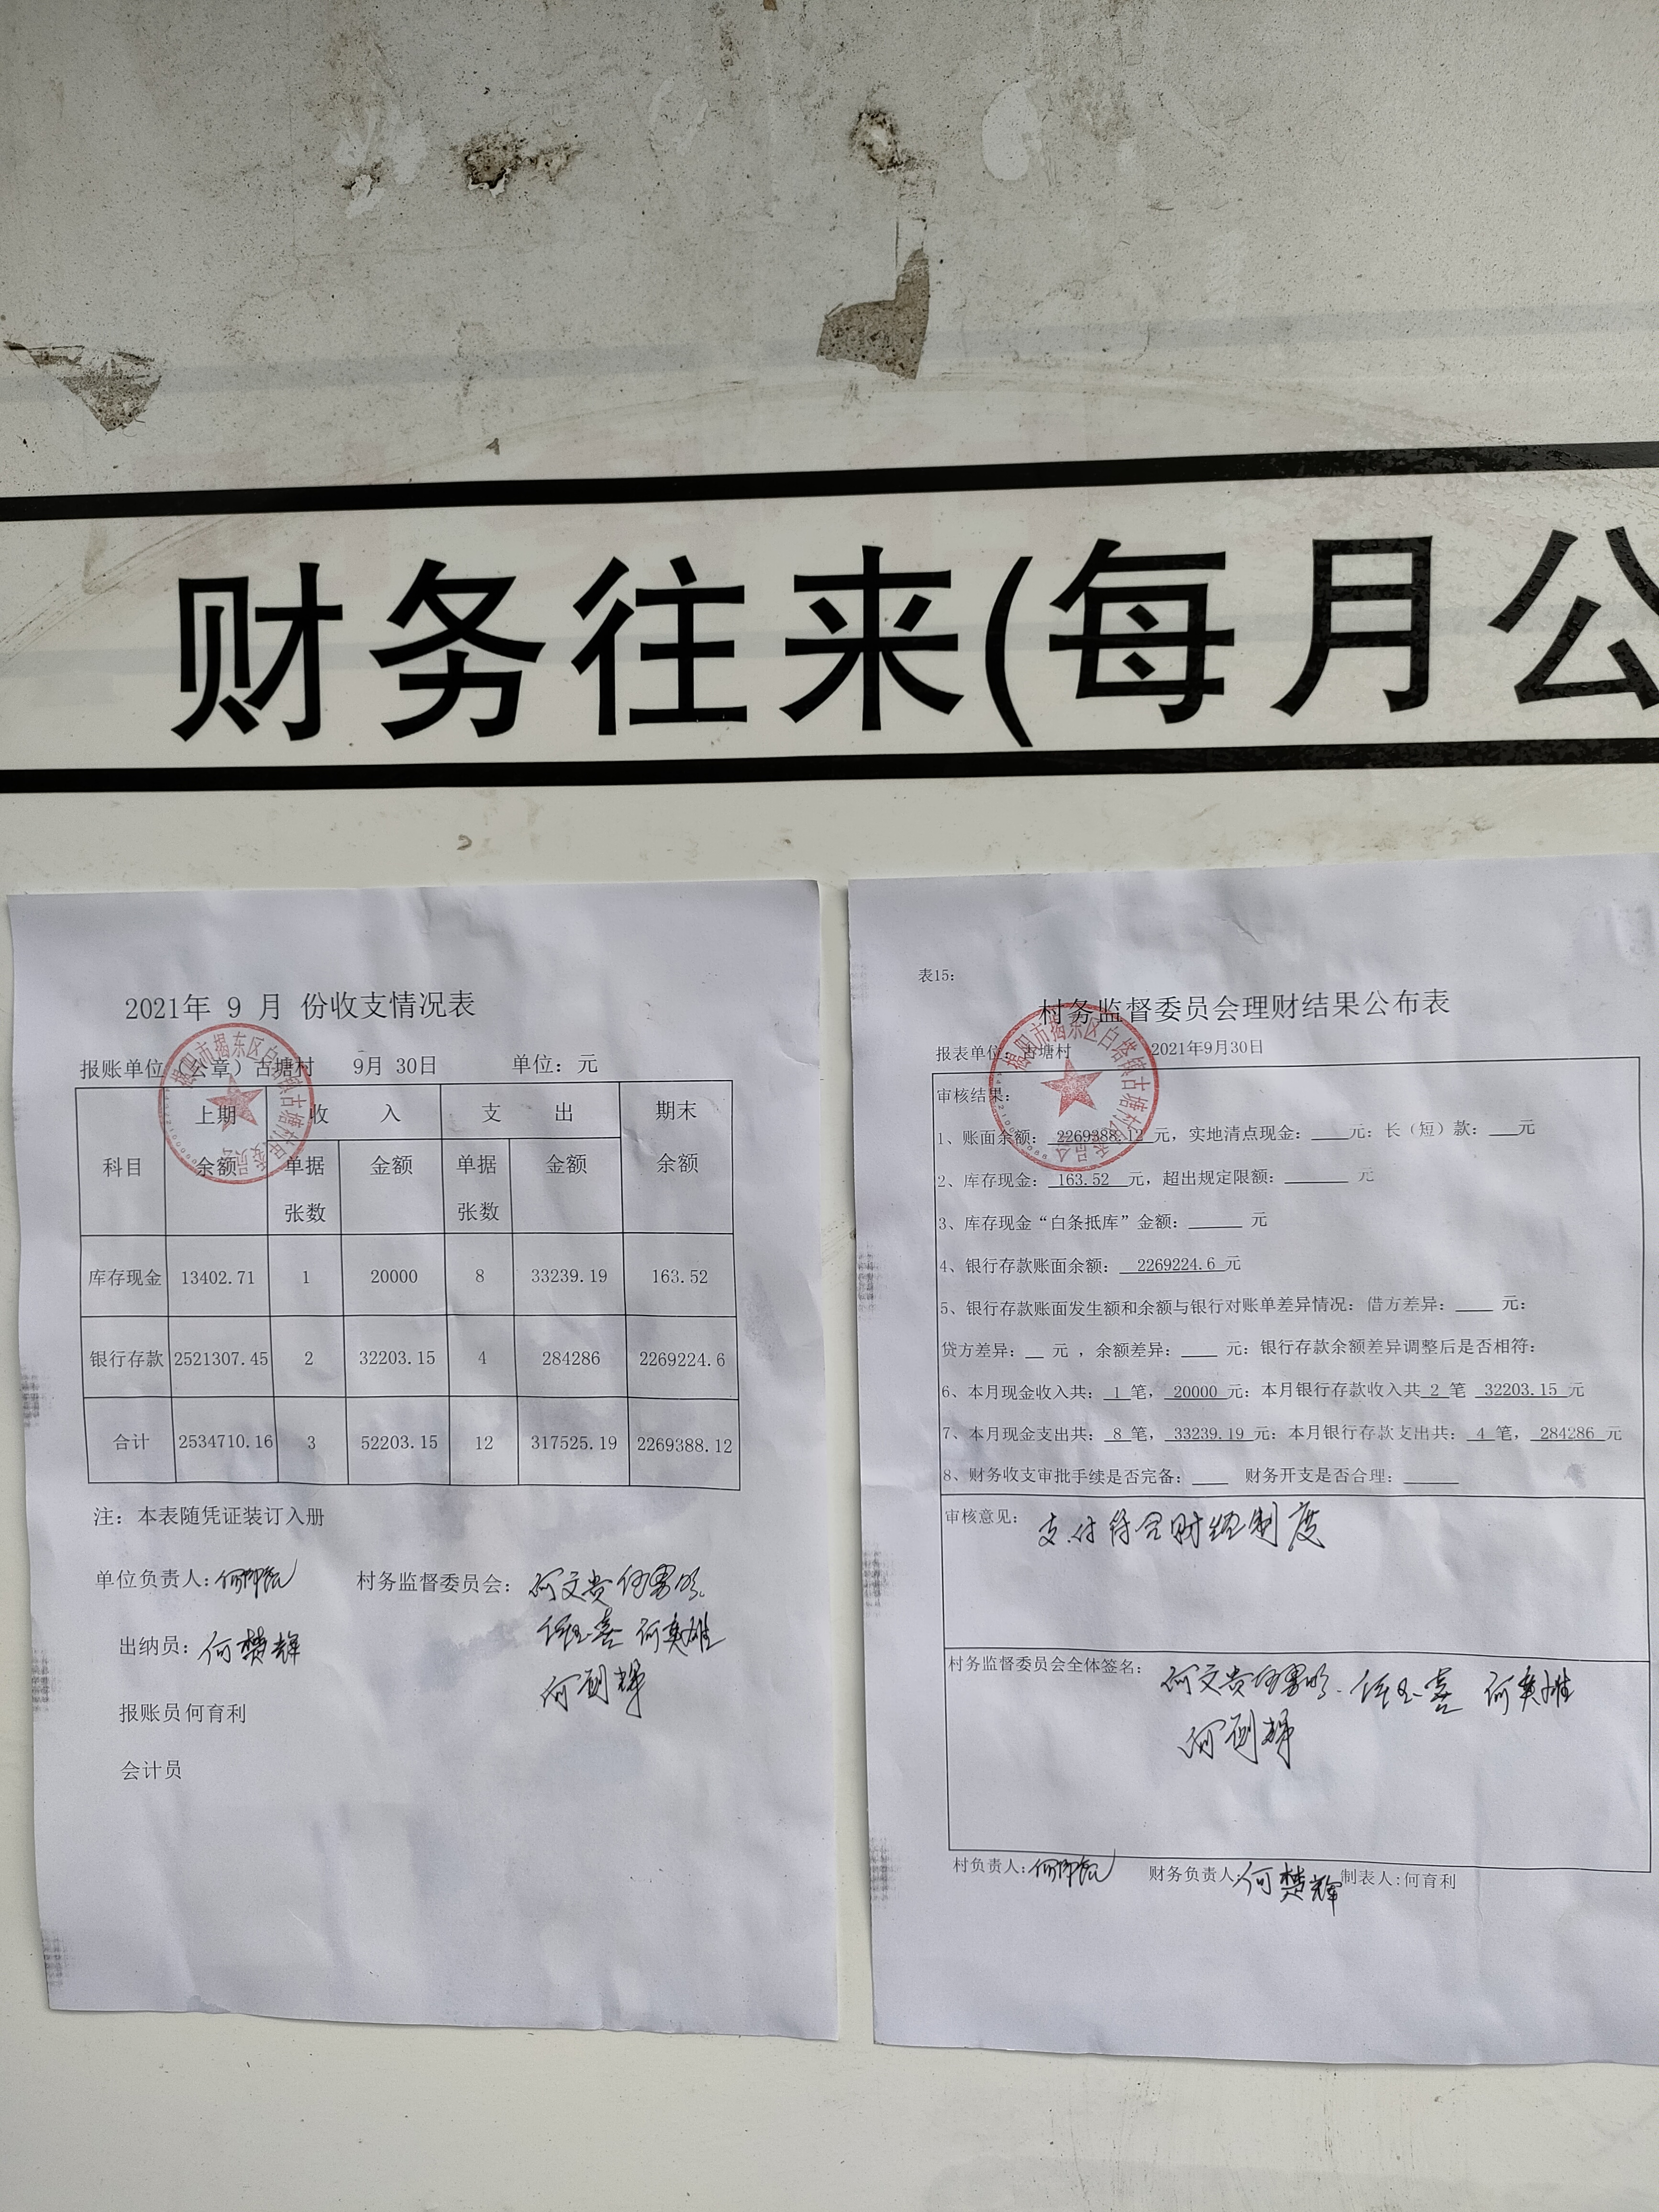 财务往来(每月公
2021年 9 月 份收支情况表
报账单位（公章）古塘村 9月 30日 单位：元
科目 上期余额 收入 支出 期末余额
单据张数 金额 单据张数 金额
库存现金 13402.71 1 20000 8 33239.19 163.52
银行存款 2521307.45 2 32203.15 4 284286 2269224.6
合计 2534710.16 3 52203.15 12 317525.19 2269388.12
注：本表随凭证装订入册
单位负责人: 村务监督委员会：何文贵
何英雄
出纳员：何楚辉
报账员何育利
会计员
表15:
村务监督委员会理财结果公布表
报表单位：古塘村 2021年9月30日
审核结果:
1、账面余额： 2269388.12 元，实地清点现金：____元: 长（短）款：___元
2、库存现金： 163.52 元，超出规定限额：______ 元
3、库存现金“白条抵库”金额：_____ 元
4、银行存款账面余额： 2269224.6 元
5、银行存款账面发生额和余额与银行对账单差异情况: 借方差异：____ 元:
贷方差异:__ 元 ，余额差异：____ 元: 银行存款余额差异调整后是否相符:
6、本月现金收入共： 1 笔， 20000 元: 本月银行存款收入共 2 笔 32203.15 元
7、本月现金支出共： 8 笔， 33239.19 元: 本月银行存款支出共： 4 笔， 284286 元
8、财务收支审批手续是否完备：____ 财务开支是否合理：_____
审核意见: 支付符合财经制度
村务监督委员会全体签名: 何文贵 何英雄
村负责人: 财务负责人:何楚辉 制表人:何育利
揭阳市揭东区白塔镇古塘村
揭阳市揭东区白塔镇古塘村